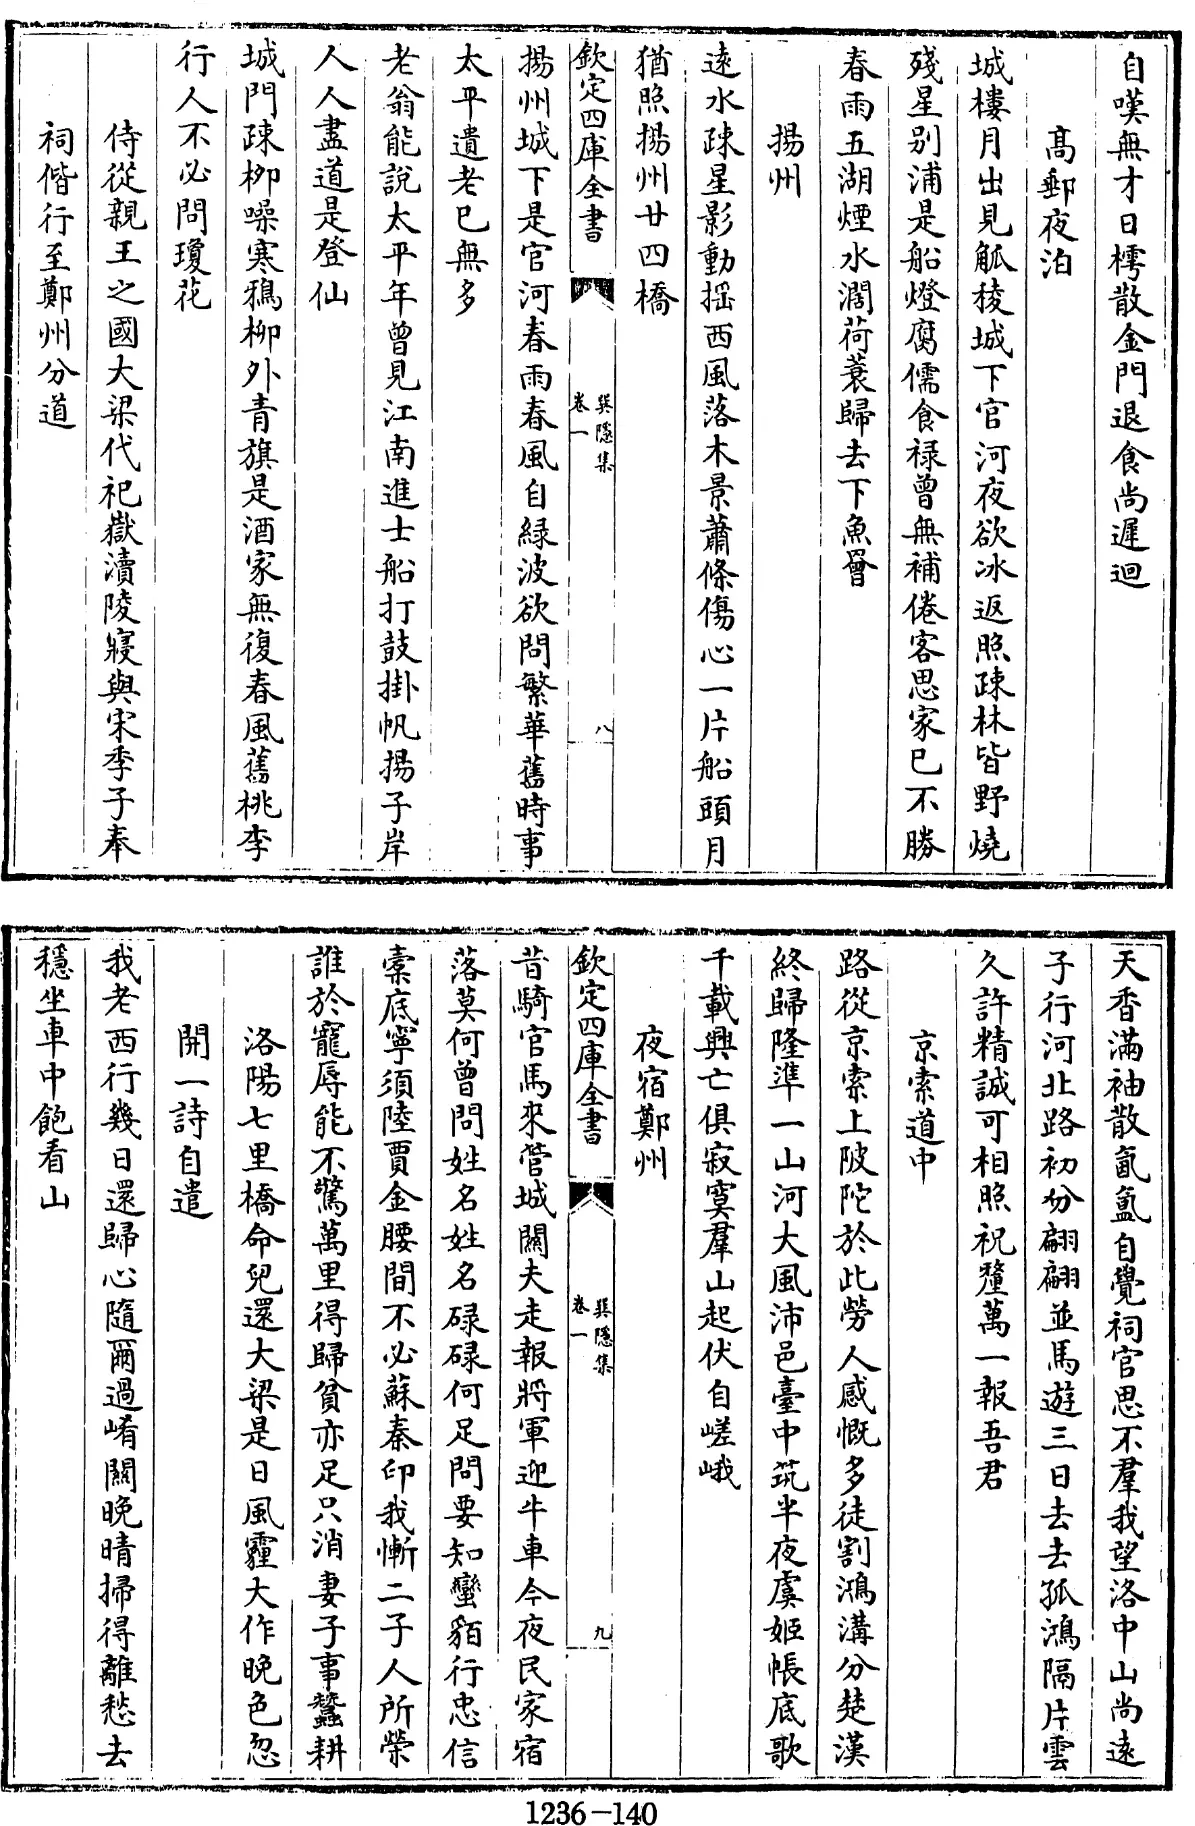 自嘆無才日樗散金門退食尚遲迴
髙郵夜泊
城樓月出見觚稜城下官河夜欲冰返照疎林皆野燒
殘星别浦是船燈腐儒食禄曾無補倦客思家已不勝
春雨五湖煙水濶荷蓑歸去下魚罾
揚州
遠水疎星影動揺西風落木景蕭條傷心一片船頭月
猶照揚州廿四橋
欽定四庫全書
巽隱集
卷一
八
揚州城下是官河春雨春風自緑波欲問繁華舊時事
太平遺老已無多
老翁能說太平年曾見江南進士船打鼓掛帆揚子岸
人人盡道是登仙
城門疎柳噪寒鴉柳外青旗是酒家無復春風舊桃李
行人不必問瓊花
侍從親王之國大梁代祀嶽瀆陵寢與宋季子奉
祠偕行至鄭州分道
天香滿袖散氤氲自覺祠官思不羣我望洛中山尚遠
子行河北路初分翩翩並馬遊三日去去孤鴻隔片雲
久許精誠可相照祝釐萬一報吾君
京索道中
路從京索上陂陀於此勞人感慨多徒割鴻溝分楚漢
終歸隆準一山河大風沛邑臺中筑半夜虞姬帳底歌
千載興亡俱寂寞羣山起伏自嵯峨
夜宿鄭州
欽定四庫全書
巽隱集
卷一
九
昔騎官馬來管城關夫走報將軍迎牛車今夜民家宿
落莫何曾問姓名姓名碌碌何足問要知蠻貊行忠信
橐底寧須陸賈金腰間不必蘇秦印我慚二子人所榮
誰於寵辱能不驚萬里得歸貧亦足只消妻子事蠶耕
洛陽七里橋命兒還大梁是日風霾大作晚色忽
開一詩自遣
我老西行幾日還歸心隨爾過崤關晚晴掃得離愁去
穩坐車中飽看山
1236-140